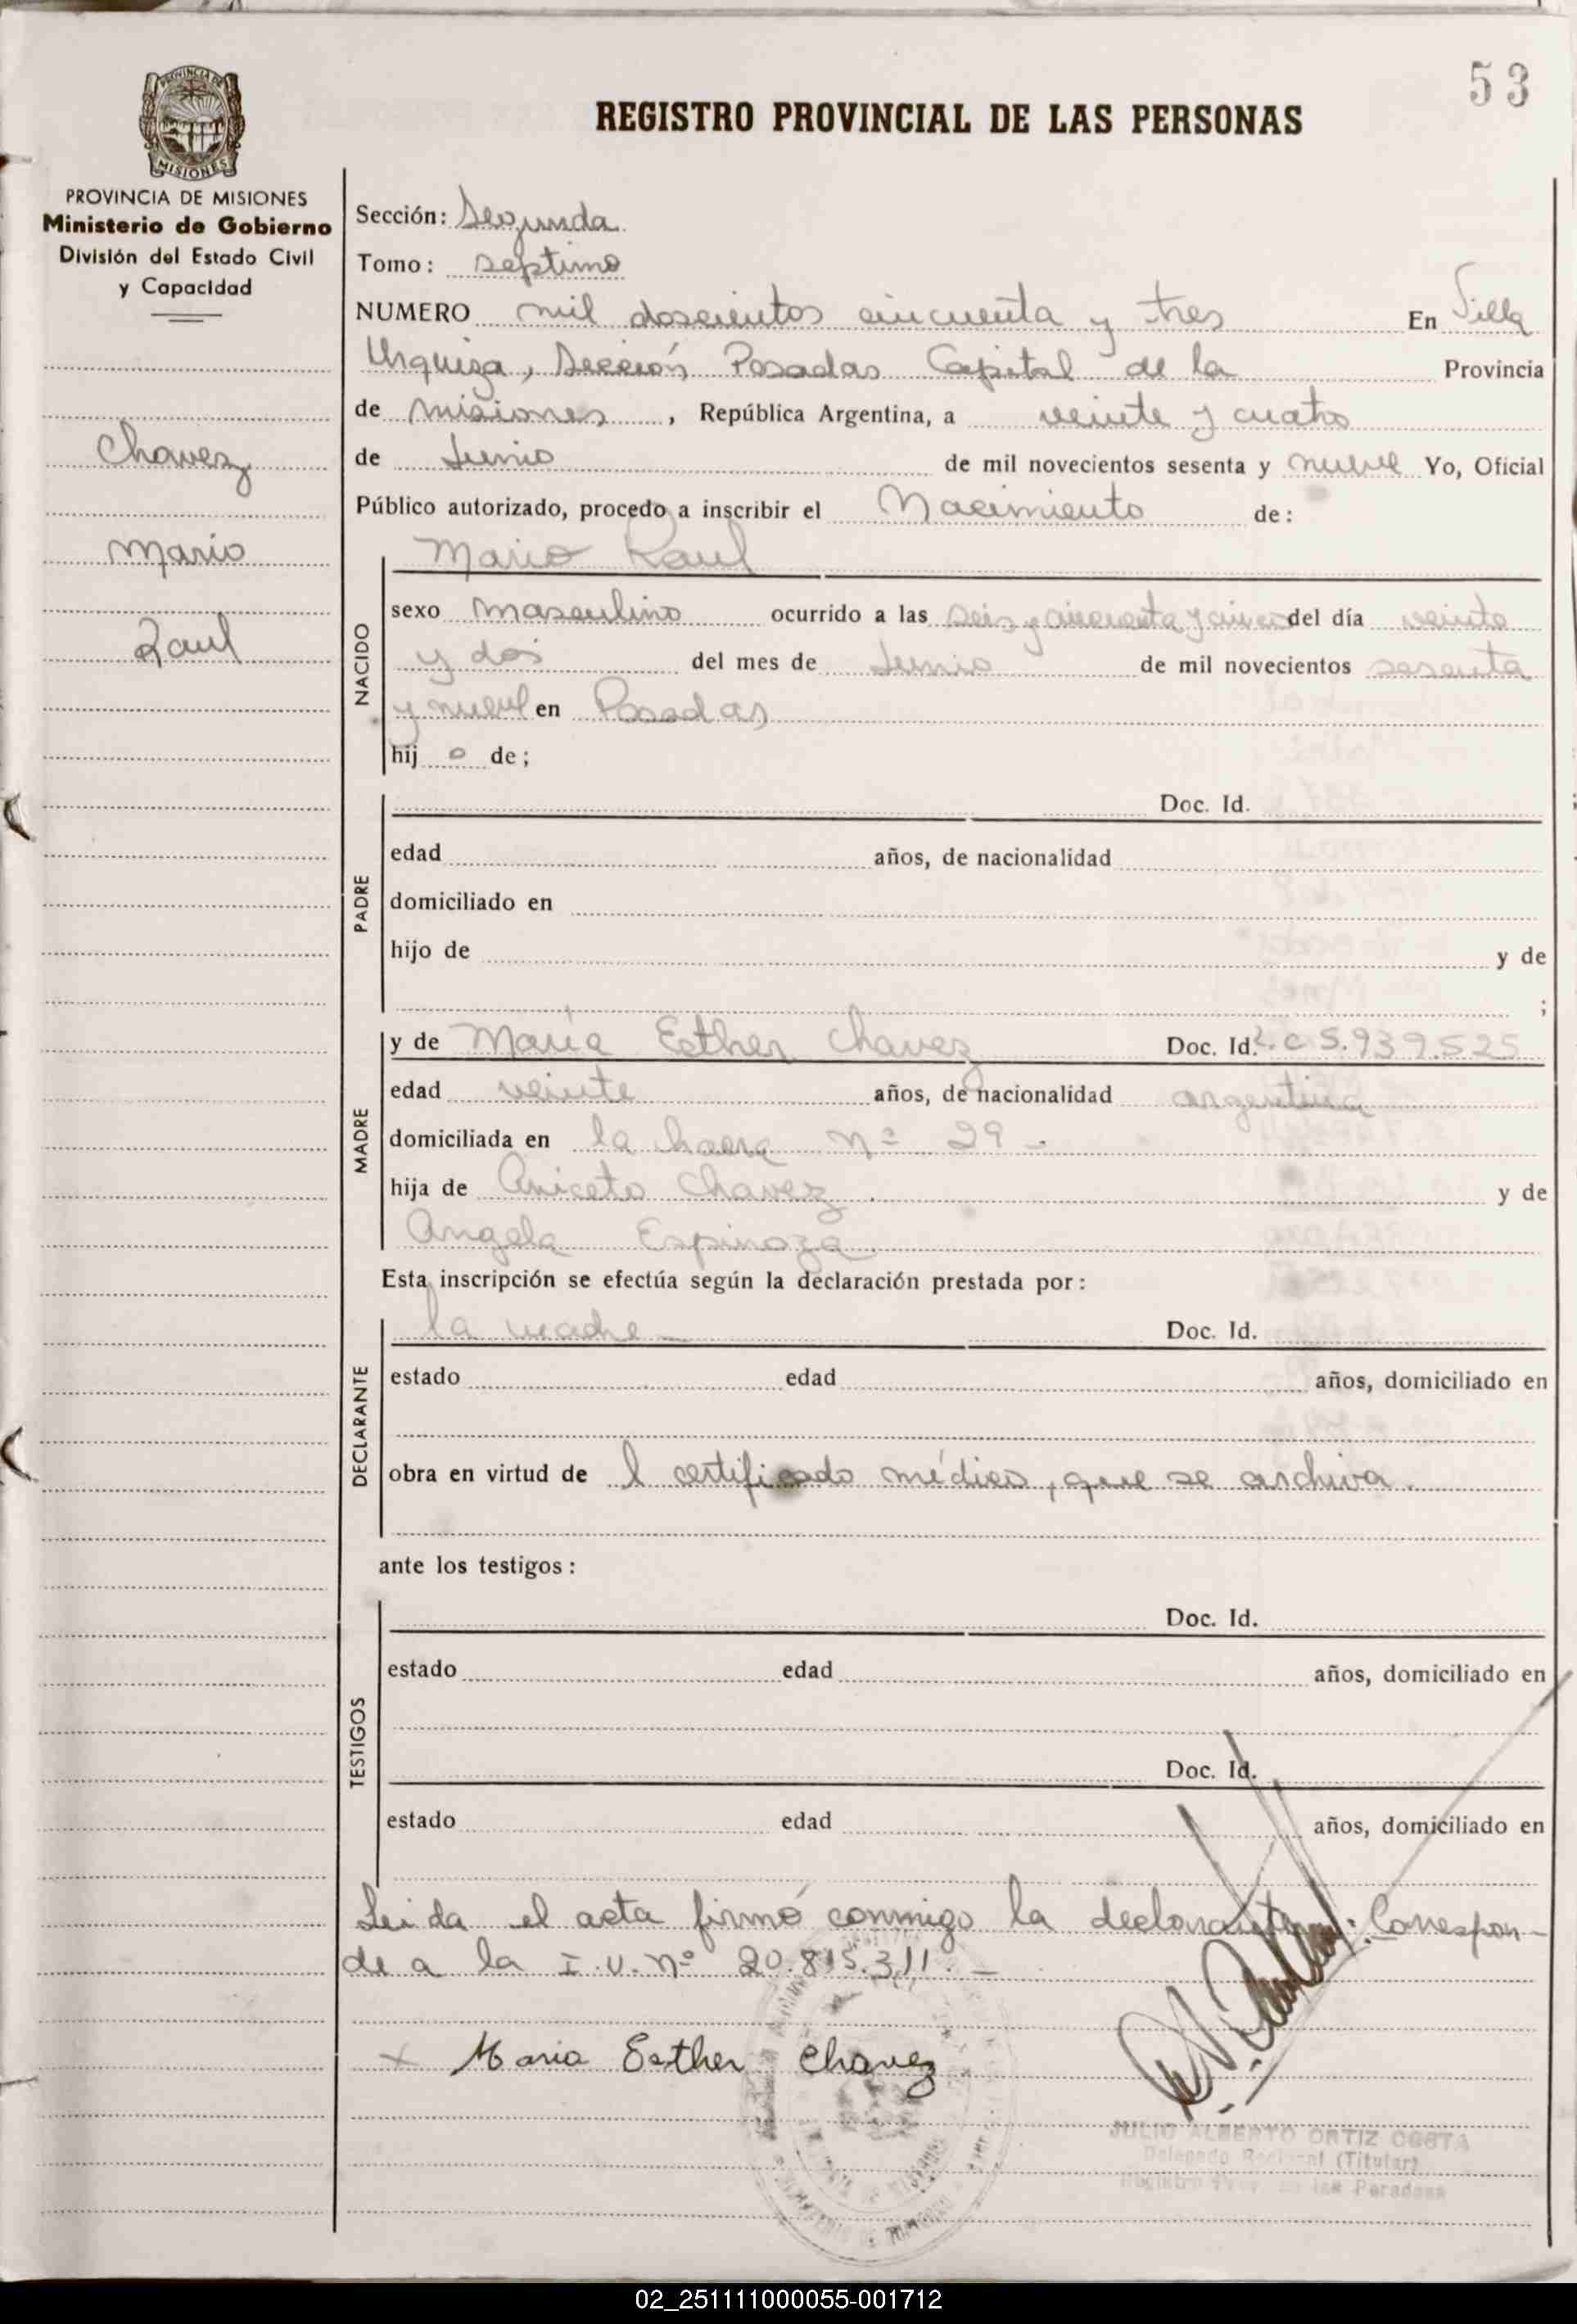 53
PROVINCIA DE
MISIONES
REGISTRO PROVINCIAL DE LAS PERSONAS
PROVINCIA DE MISIONES
Ministerio de Gobierno
División del Estado Civil
y Capacidad
Chavez
Mario
Raul
Sección: Segunda
Tomo: septimo
NUMERO mil doscientos cincuenta y tres En Villa
Urquiza, Sección Posadas Capital de la Provincia
de Misiones, República Argentina, a veinte y cuatro
de Junio de mil novecientos sesenta y nueve Yo, Oficial
Público autorizado, procedo a inscribir el Nacimiento de:
NACIDO
Mario Raul
sexo masculino ocurrido a las seis y cincuenta y cinco del día veinte
y dos del mes de Junio de mil novecientos sesenta
y nueve en Posadas
hij o de;
PADRE
Doc. Id.
edad años, de nacionalidad
domiciliado en
hijo de y de
;
MADRE
y de Maria Esther Chavez Doc. Id. L.C 5.939.525
edad veinte años, de nacionalidad argentina
domiciliada en la chacra nº 29 -
hija de Aniceto Chavez y de
Angela Espinoza
Esta inscripción se efectúa según la declaración prestada por:
DECLARANTE
la madre - Doc. Id.
estado edad años, domiciliado en
obra en virtud de l certificado médico, que se archiva.
ante los testigos:
TESTIGOS
Doc. Id.
estado edad años, domiciliado en
Doc. Id.
estado edad años, domiciliado en
Leida el acta firmó conmigo la declarante: Correspon-
de a la I.U. nº 20.815.311. -
x Maria Esther Chavez
JULIO ALBERTO ORTIZ COSTA
Delegado Regional (Titular)
02_251111000055-001712